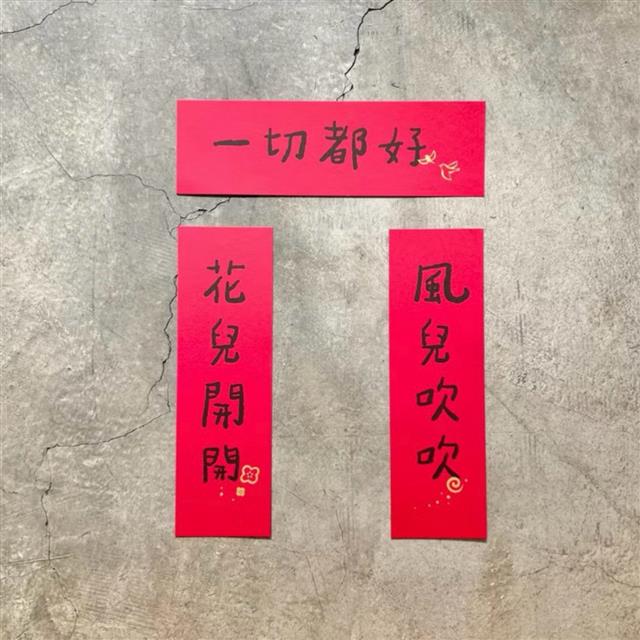 一切都好
風兒吹吹
花兒開開